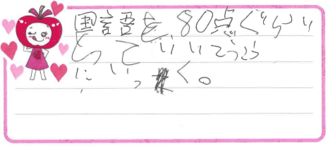 国語を80点ぐらい
とっていいてうこう
にいっく。